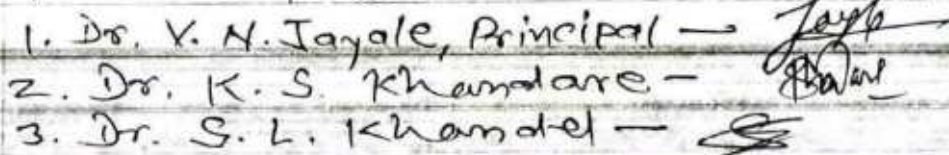 1. Dr. V. N. Jayale, Principal -
2. Dr. K. S. Khandare -
3. Dr. S. L. Khandel -